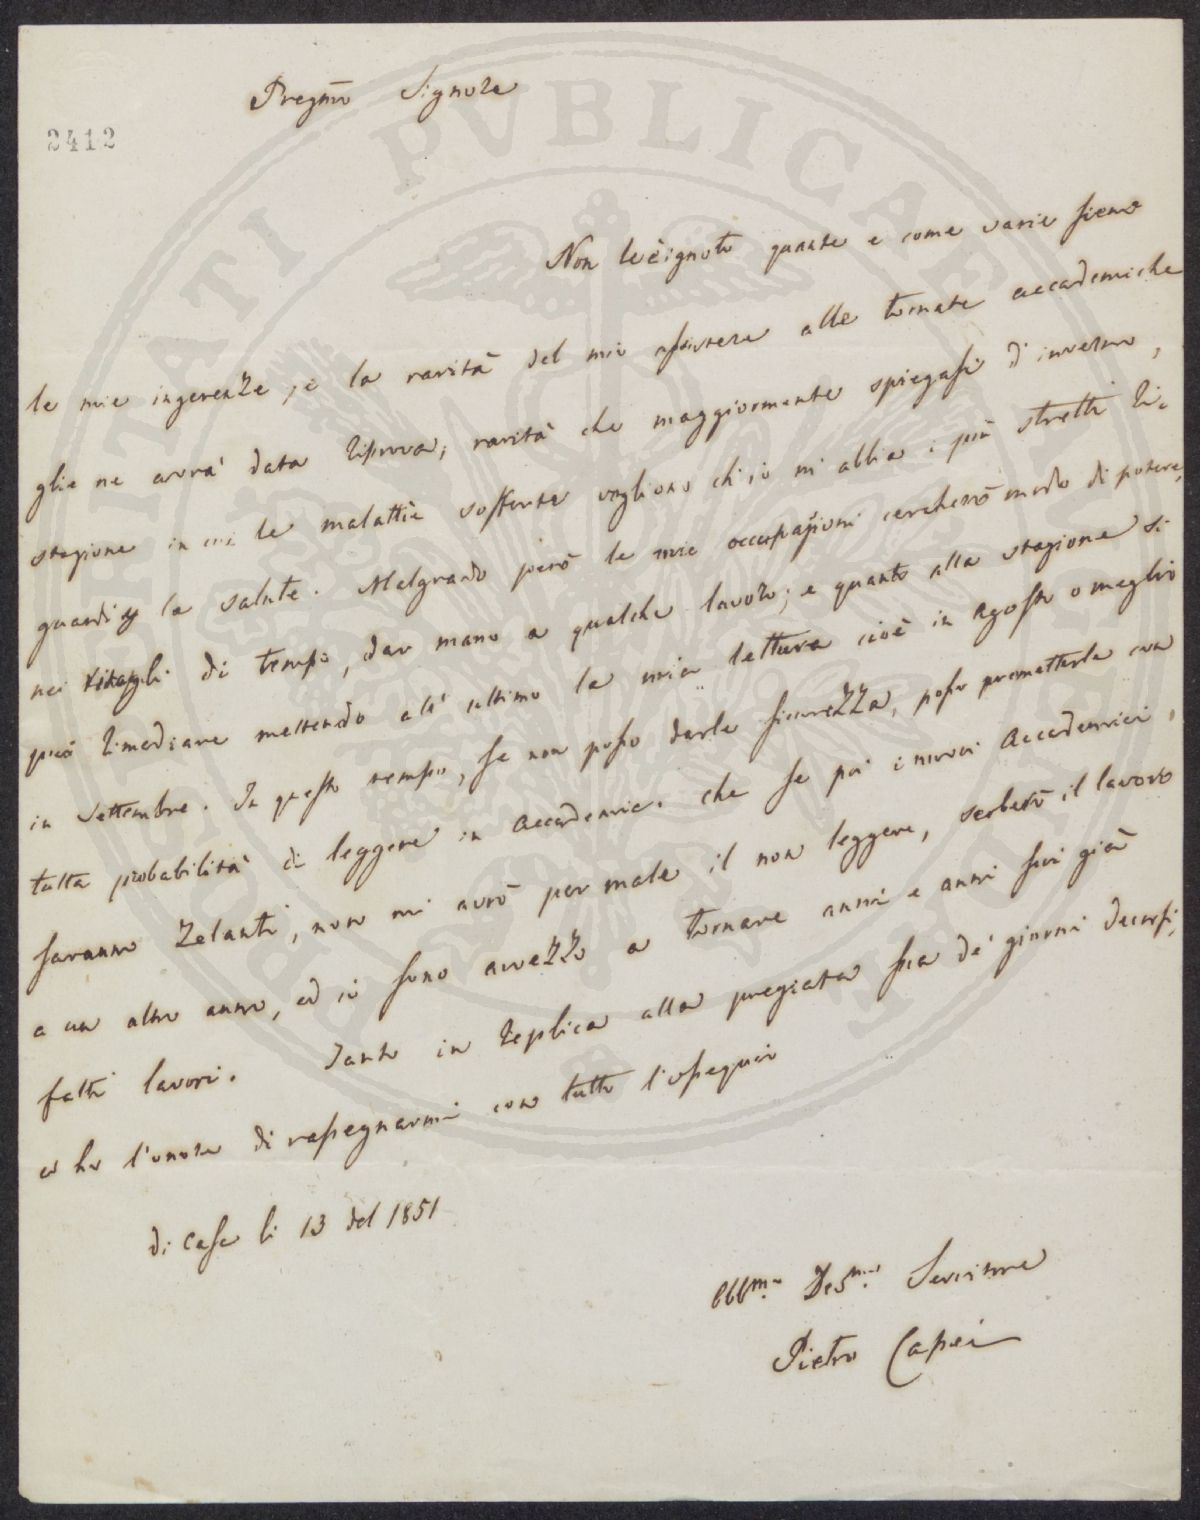 Pregmo Signore
2412
Non le è ignoto quante e come varie sieno
le mie ingerenze, e la rarità del mio assistere alle tornate accademiche
glie ne avrà data riprova; rarità che maggiormente spiegasi d'inverno,
stagione in cui le malattie sofferte vogliono ch'io mi abbia i più stretti ri-
guardi la salute. Malgrado però le mie occupazioni cercherò modo di potere,
nei ritagli di tempo, dar mano a qualche lavoro; e quanto alla stagione si
può rimediare mettendo all'ultimo la mia lettura cioè in Agosto o meglio
in Settembre. In questo tempo, se non posso darle sicurezza, posso prometterle con
tutta probabilità di leggere in Accademia. che se poi i nuovi Accademici,
saranno zelanti, non mi avrò per male il non leggere, serberò il lavoro
a un altro anno, ed io sono avvezzo a tornare anni e anni sui già
fatti lavori. Tanto in replica alla pregiata sua de' giorni decorsi,
ed ho l'onore di rassegnarmi con tutto l'ossequio
di Casa li 13 del 1851
Obbmo. Devmo. Servitore
Pietro Capei
PUBLICAE UTILITATI